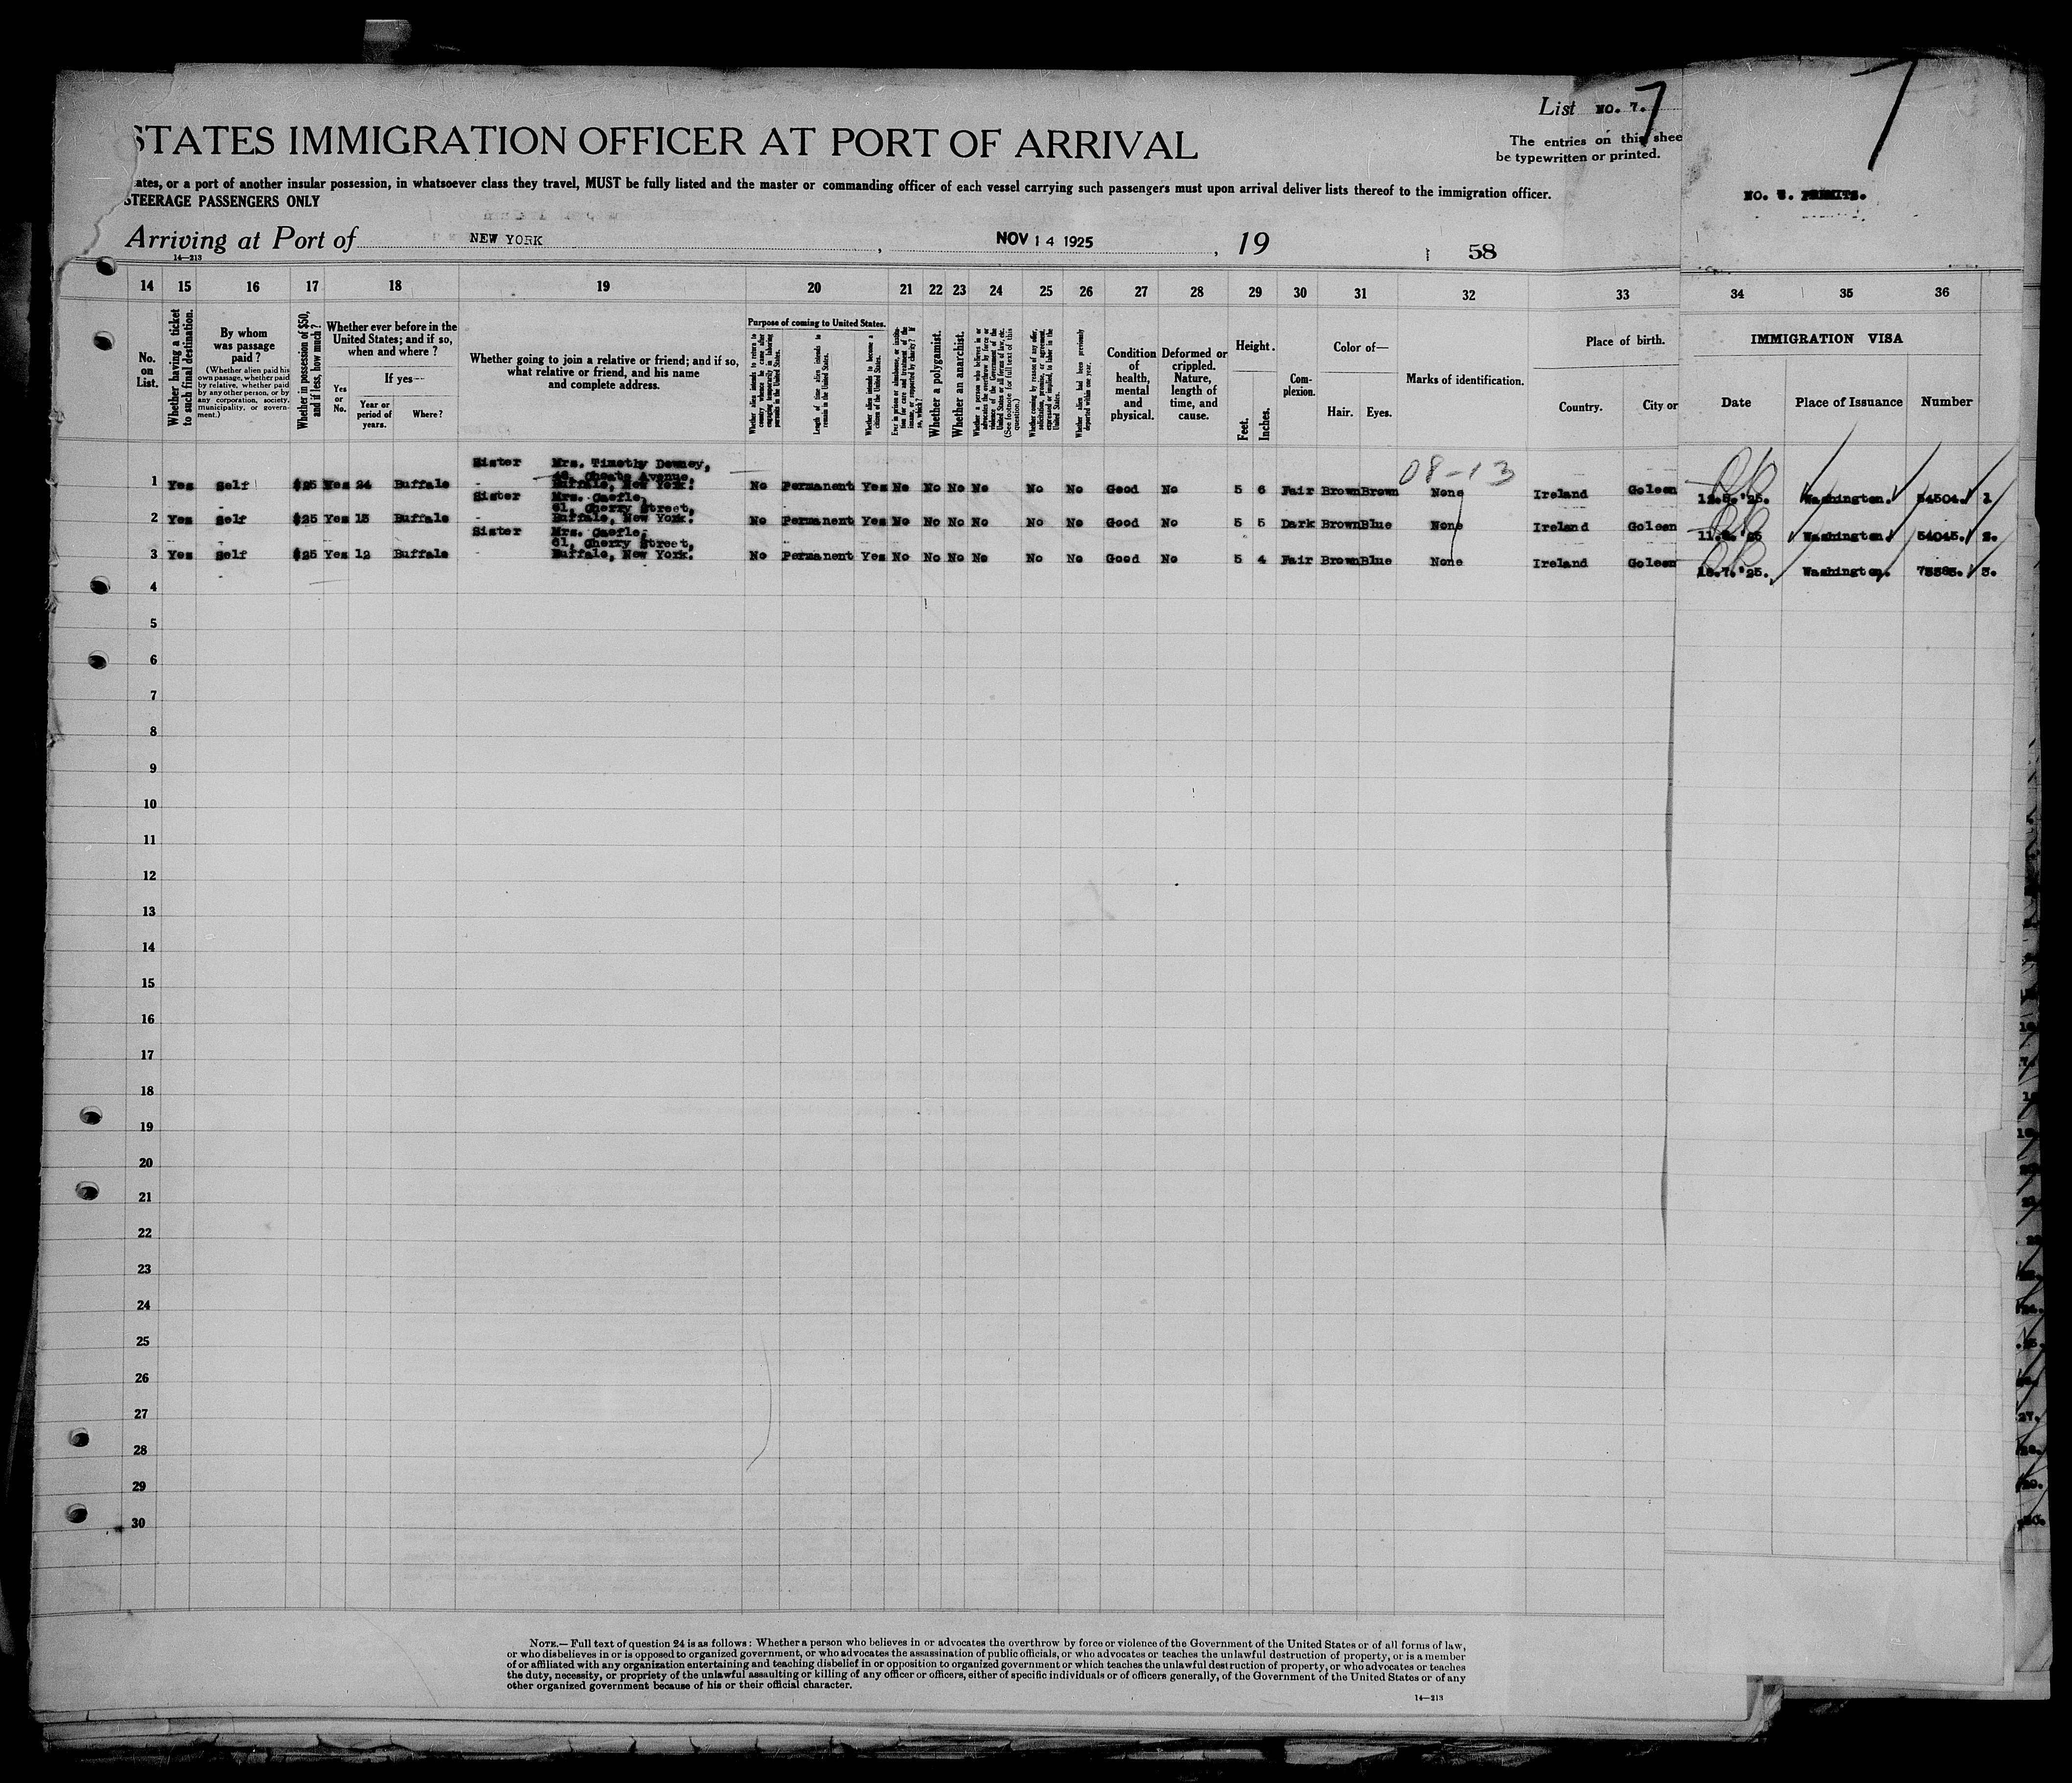 List No. 7.
7
7
STATES IMMIGRATION OFFICER AT PORT OF ARRIVAL
The entries on this shee
be typewritten or printed.
ates, or a port of another insular possession, in whatsoever class they travel, MUST be fully listed and the master or commanding officer of each vessel carrying such passengers must upon arrival deliver lists thereof to the immigration officer.
STEERAGE PASSENGERS ONLY
Arriving at Port of NEW YORK, NOV 14 1925, 19
58
14—213
14 15 16 17 18 19 20 21 22 23 24 25 26 27 28 29 30 31 32 33 34 35 36
No. on List.
Whether having a ticket to such final destination.
By whom was passage paid?
(Whether alien paid his own passage, whether paid by relative, whether paid by any other person, or by any corporation, society, municipality, or government.)
Whether in possession of $50, and if less, how much?
Whether ever before in the United States; and if so, when and where?
Yes or No.
If yes—
Year or period of years.
Where?
Whether going to join a relative or friend; and if so, what relative or friend, and his name and complete address.
Purpose of coming to United States.
Length of time alien intends to remain in the United States.
Whether alien intends to become a citizen of the United States.
Whether a polygamist.
Whether an anarchist.
Condition of health, mental and physical.
Deformed or crippled. Nature, length of time, and cause.
Height.
Feet.
Inches.
Complexion.
Color of—
Hair.
Eyes.
Marks of identification.
Place of birth.
Country.
City or
IMMIGRATION VISA
Date
Place of Issuance
Number
08-13
Sister Mrs. Timothy Downey,
Choate Avenue,
1 Yes Self $25 Yes 24 Buffalo Buffalo, New York. No Permanent Yes No No No No No No Good No 5 6 Fair Brown Brown None Ireland Goleen Washington. 1
Sister Mrs. Gaefle,
61, Cherry Street,
2 Yes Self $25 Yes 13 Buffalo Buffalo, New York. No Permanent Yes No No No No No No Good No 5 5 Dark Brown Blue None Ireland Goleen Washington. 54045. 2.
Sister Mrs. Gaefle,
61, Cherry Street,
3 Yes Self $25 Yes 12 Buffalo Buffalo, New York. No Permanent Yes No No No No No No Good No 5 4 Fair Brown Blue None Ireland Goleen Washington. 3.
4
5
6
7
8
9
10
11
12
13
14
15
16
17
18
19
20
21
22
23
24
25
26
27
28
29
30
NOTE.—Full text of question 24 is as follows: Whether a person who believes in or advocates the overthrow by force or violence of the Government of the United States or of all forms of law,
or who disbelieves in or is opposed to organized government, or who advocates the assassination of public officials, or who advocates or teaches the unlawful destruction of property, or is a member
of or affiliated with any organization entertaining and teaching disbelief in or opposition to organized government or which teaches the unlawful destruction of property, or who advocates or teaches
the duty, necessity, or propriety of the unlawful assaulting or killing of any officer or officers, either of specific individuals or of officers generally, of the Government of the United States or of any
other organized government because of his or their official character.
14—213